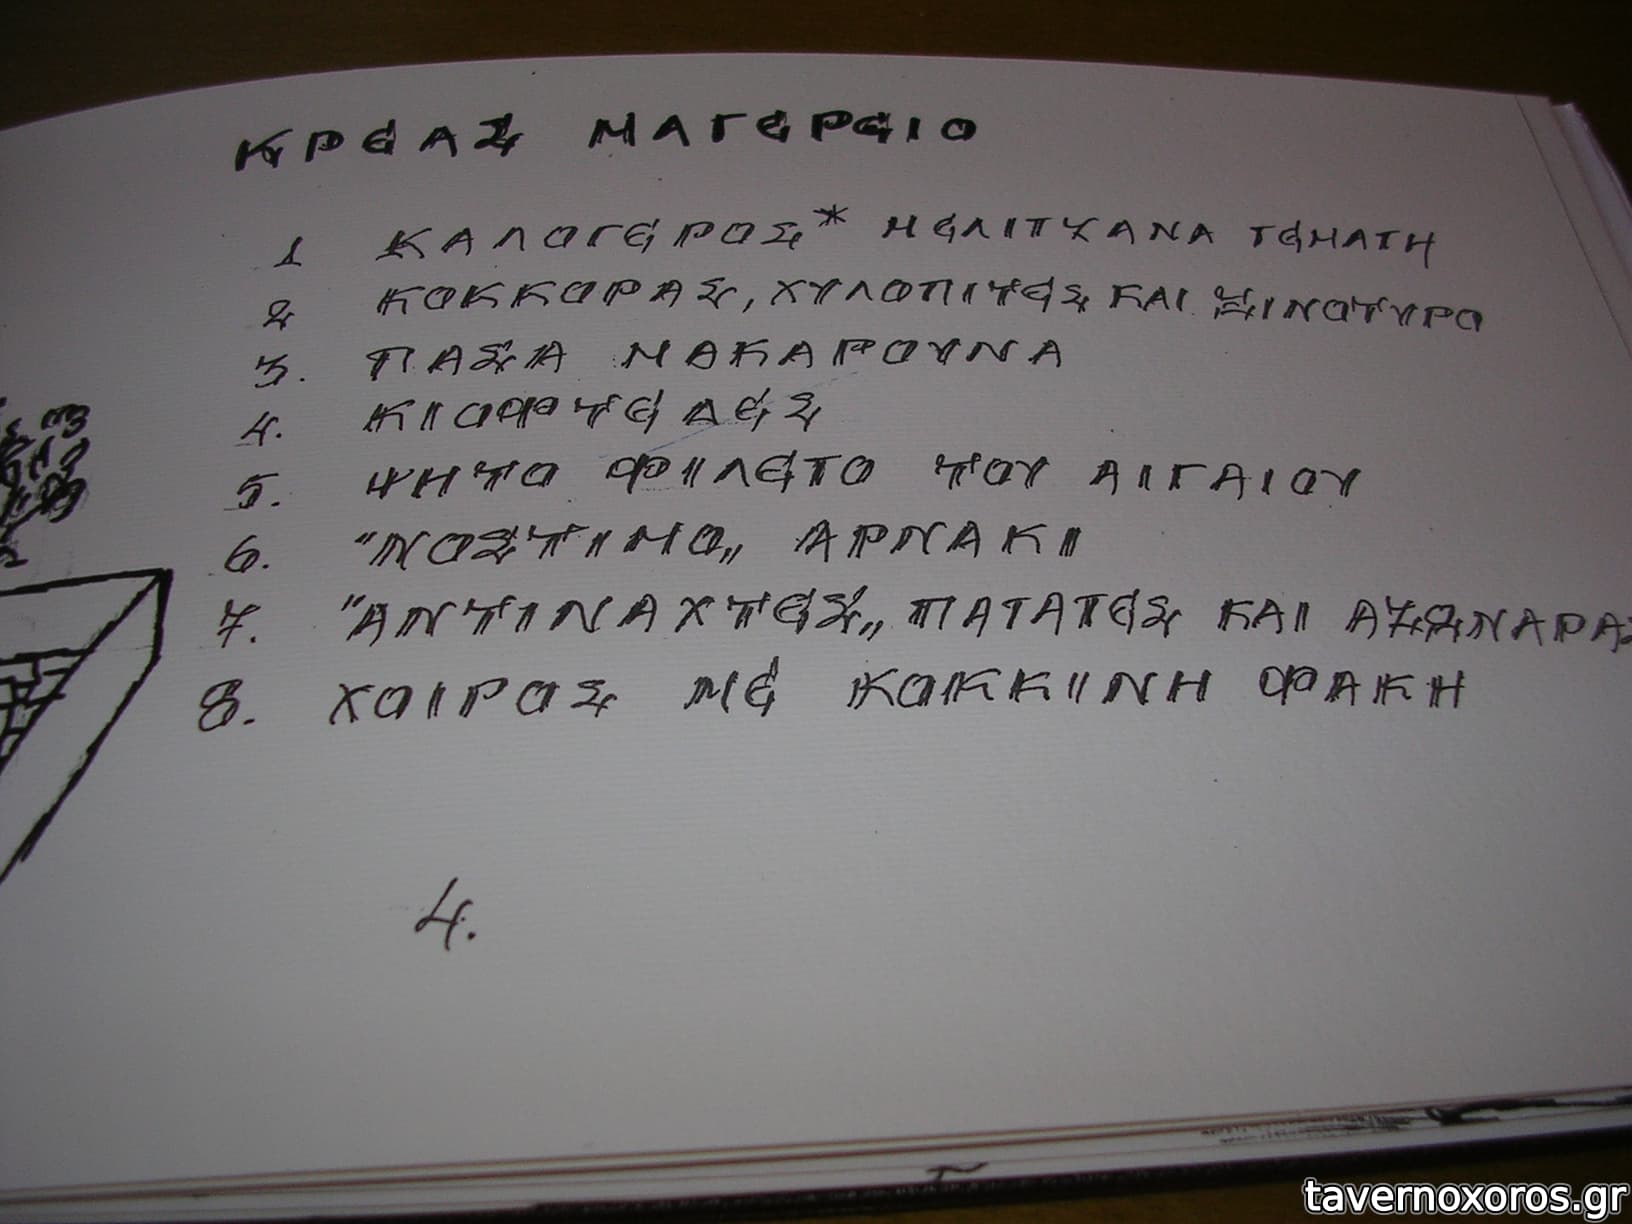 ΚΡΕΑΣ ΜΑΓΕΡΕΙΟ
1 ΚΑΛΟΓΕΡΟΣ* ΜΕΛΙΤΖΑΝΑ ΓΕΜΑΤΗ
2 ΚΟΚΚΟΡΑΣ, ΧΥΛΟΠΙΤΕΣ ΚΑΙ ΞΙΝΟΤΥΡΟ
3. ΠΑΣΑ ΜΑΚΑΡΟΥΝΑ
4. ΚΙΟΦΤΕΔΕΣ
5. ΨΗΤΟ ΦΙΛΕΤΟ ΤΟΥ ΑΙΓΑΙΟΥ
6. "ΝΟΣΤΙΜΟ„ ΑΡΝΑΚΙ
7. "ΑΝΤΙΝΑΧΤΕΣ„ ΠΑΤΑΤΕΣ ΚΑΙ ΑΖΩΝΑΡΑΣ
8. ΧΟΙΡΟΣ ΜΕ ΚΟΚΚΙΝΗ ΦΑΚΗ
4.
tavernoxoros.gr